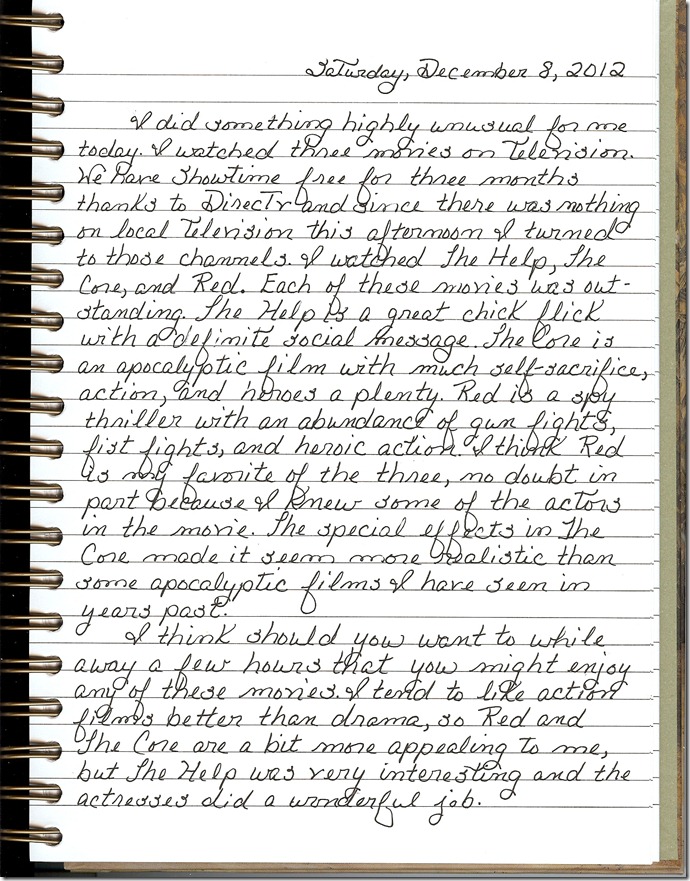 Saturday, December 8, 2012
I did something highly unusual for me
today. I watched three movies on Television.
We have Showtime free for three months
thanks to DirecTv and since there was nothing
on local Television this afternoon I turned
to those channels. I watched The Help, The
Core, and Red. Each of these movies was out-
standing. The Help is a great chick flick
with a definite social message. The Core is
an apocalyptic film with much self-sacrifice,
action, and heroes a plenty. Red is a spy
thriller with an abundance of gun fights,
fist fights, and heroic action. I think Red
is my favorite of the three, no doubt in
part because I knew some of the actors
in the movie. The special effects in The
Core made it seem more realistic than
some apocalyptic films I have seen in
years past.
I think should you want to while
away a few hours that you might enjoy
any of these movies. I tend to like action
films better than drama, so Red and
The Core are a bit more appealing to me,
but The Help was very interesting and the
actresses did a wonderful job.